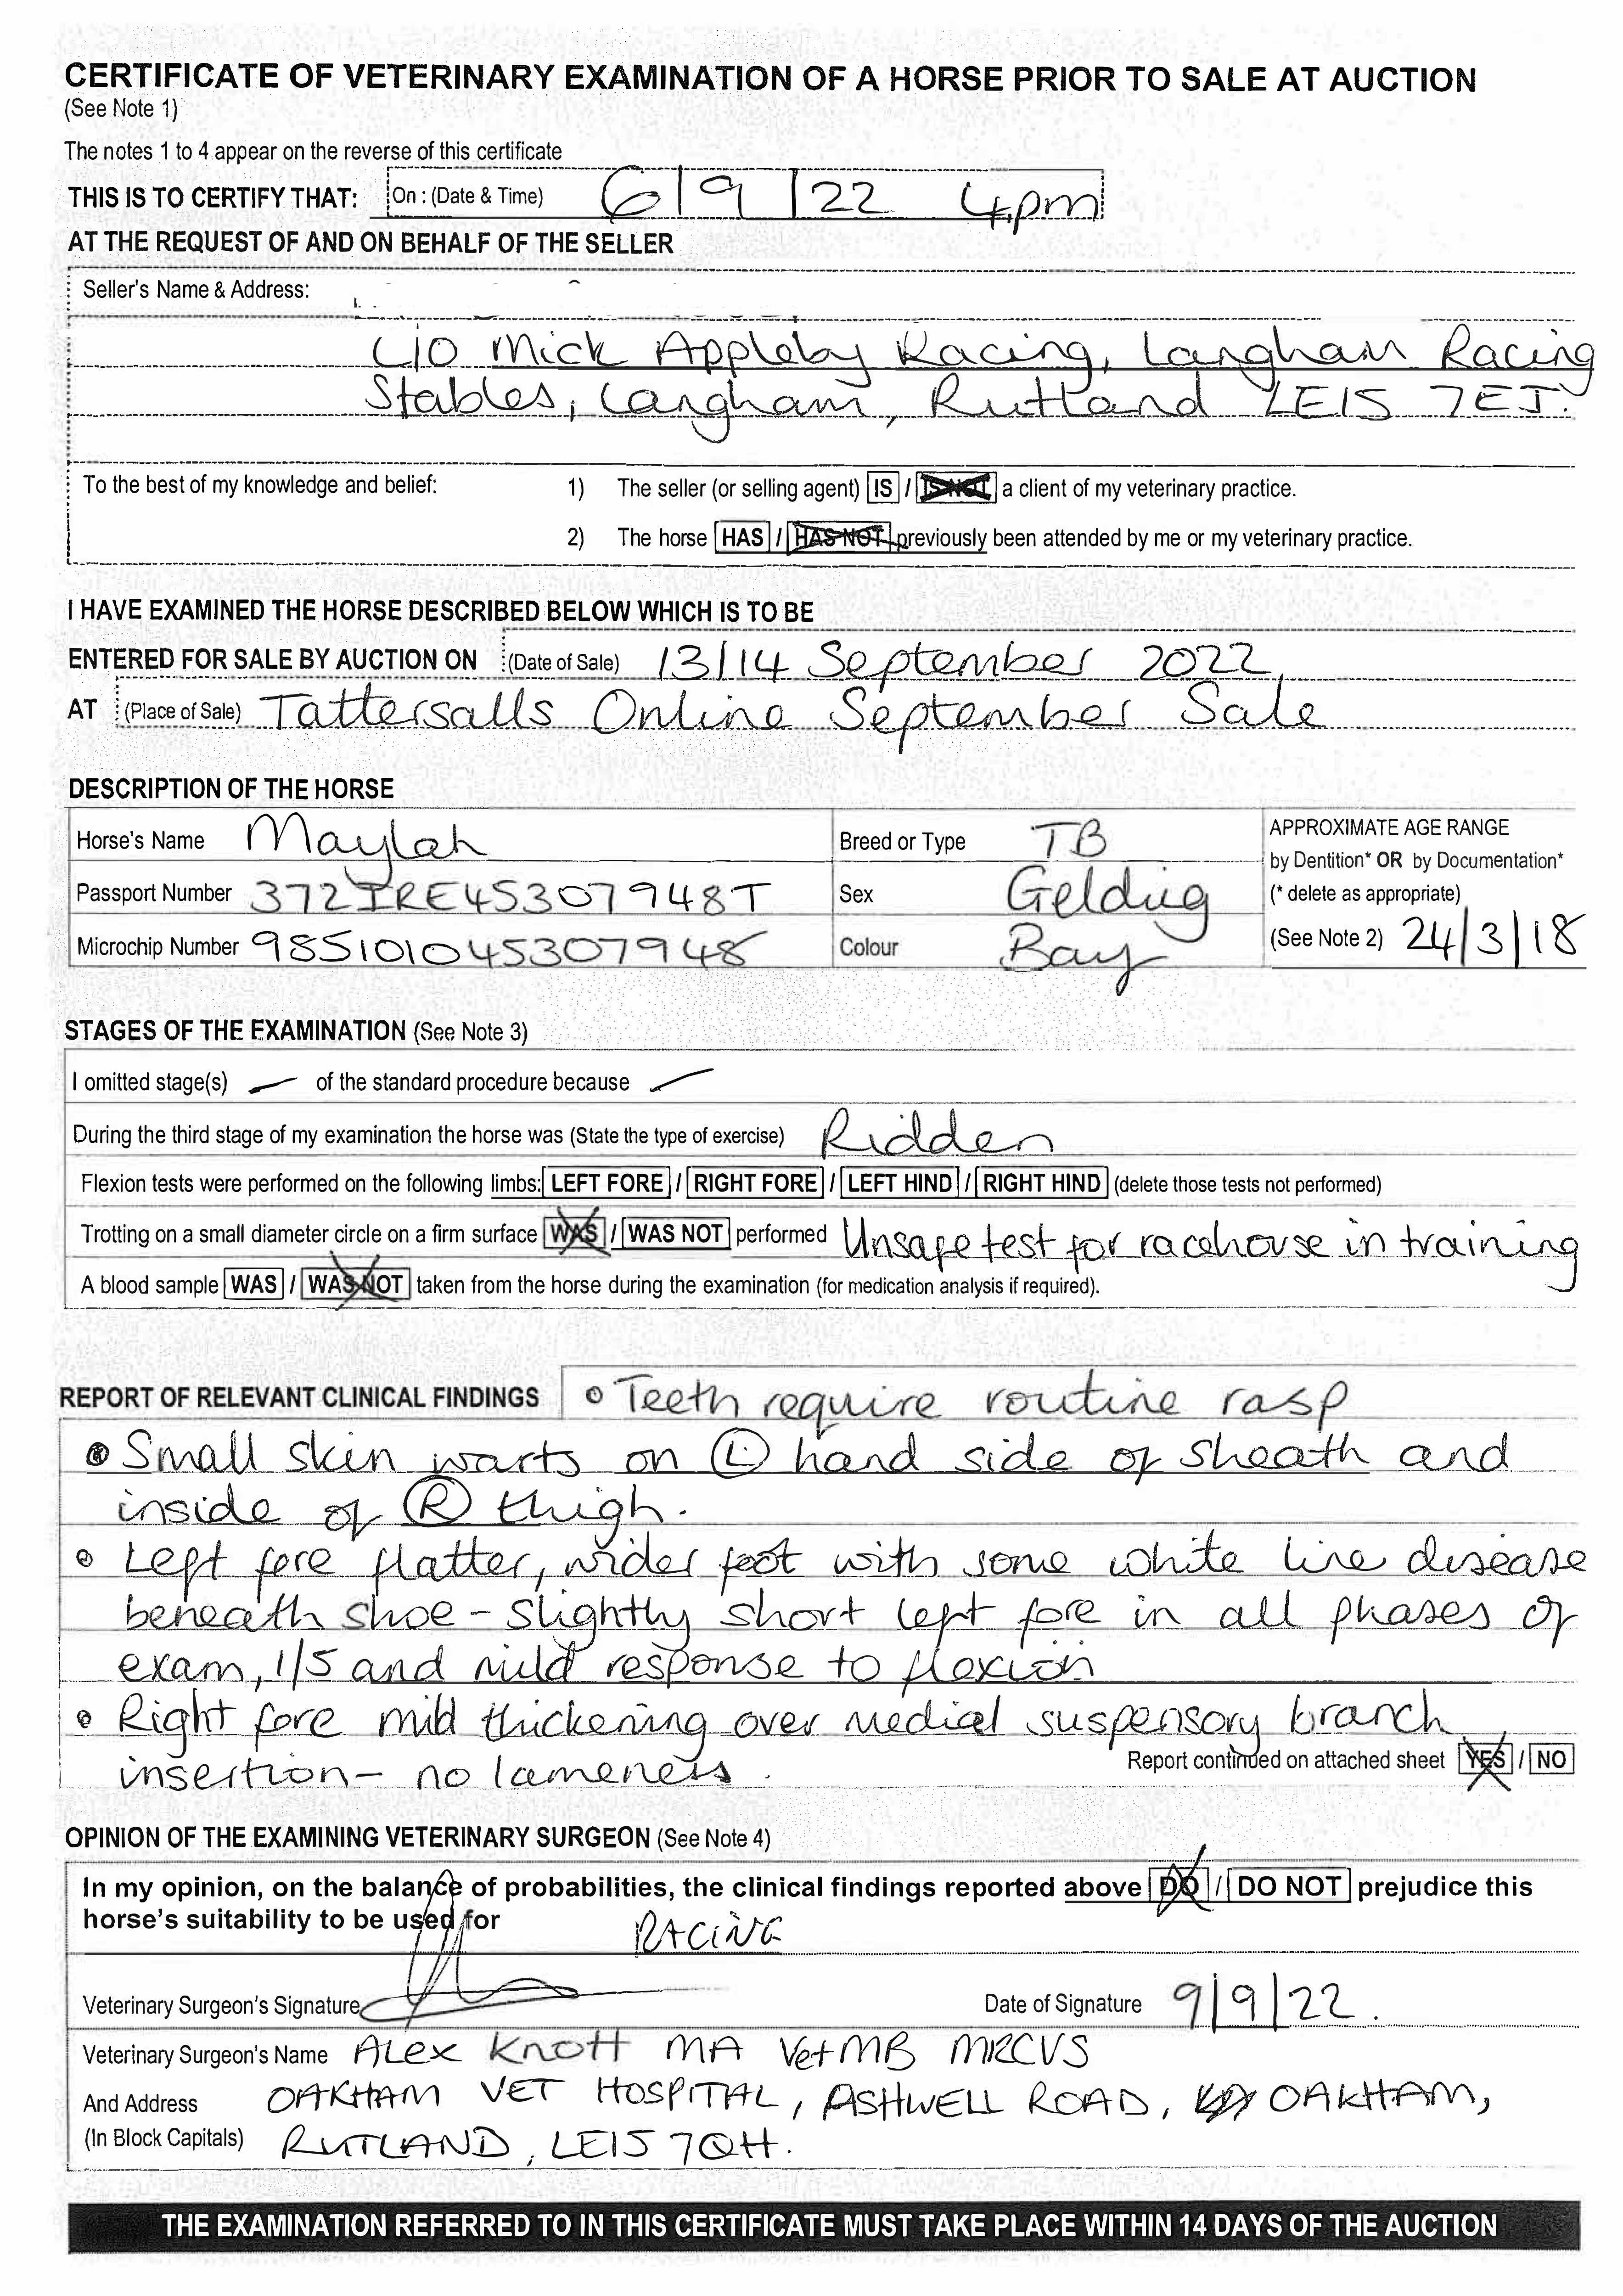 CERTIFICATE OF VETERINARY EXAMINATION OF A HORSE PRIOR TO SALE AT AUCTION
(See Note 1)
The notes 1 to 4 appear on the reverse of this certificate
THIS IS TO CERTIFY THAT: On : (Date & Time) 6/9/22 4pm
AT THE REQUEST OF AND ON BEHALF OF THE SELLER
Seller's Name & Address:
C/O Mick Appleby Racing, Langham Racing
Stables, Langham, Rutland LE15 7EJ.
To the best of my knowledge and belief: 1) The seller (or selling agent) IS / IS NOT a client of my veterinary practice.
2) The horse HAS / HAS NOT previously been attended by me or my veterinary practice.
I HAVE EXAMINED THE HORSE DESCRIBED BELOW WHICH IS TO BE
ENTERED FOR SALE BY AUCTION ON (Date of Sale) 13/14 September 2022
AT (Place of Sale) Tattersalls Online September Sale
DESCRIPTION OF THE HORSE
Horse's Name Maylah Breed or Type TB APPROXIMATE AGE RANGE
by Dentition* OR by Documentation*
Passport Number 372IRE45307948T Sex Gelding (* delete as appropriate)
Microchip Number 985101045307948 Colour Bay (See Note 2) 24/3/18
STAGES OF THE EXAMINATION (See Note 3)
I omitted stage(s) — of the standard procedure because —
During the third stage of my examination the horse was (State the type of exercise) Ridden
Flexion tests were performed on the following limbs: LEFT FORE / RIGHT FORE / LEFT HIND / RIGHT HIND (delete those tests not performed)
Trotting on a small diameter circle on a firm surface WAS / WAS NOT performed Unsafe test for racehorse in training
A blood sample WAS / WAS NOT taken from the horse during the examination (for medication analysis if required).
REPORT OF RELEVANT CLINICAL FINDINGS • Teeth require routine rasp
• Small skin warts on (L) hand side of sheath and
inside of (R) thigh.
• Left fore flatter, wider foot with some white line disease
beneath shoe - slightly short left fore in all phases of
exam, 1/5 and mild response to flexion
• Right fore mild thickening over medial suspensory branch
insertion - no lameness.
Report continued on attached sheet YES / NO
OPINION OF THE EXAMINING VETERINARY SURGEON (See Note 4)
In my opinion, on the balance of probabilities, the clinical findings reported above DO / DO NOT prejudice this
horse's suitability to be used for RACING
Veterinary Surgeon's Signature Date of Signature 9/9/22.
Veterinary Surgeon's Name ALEX KNOTT MA VetMB MRCVS
And Address OAKHAM VET HOSPITAL, ASHWELL ROAD, OAKHAM,
(In Block Capitals) RUTLAND, LE15 7QH.
THE EXAMINATION REFERRED TO IN THIS CERTIFICATE MUST TAKE PLACE WITHIN 14 DAYS OF THE AUCTION